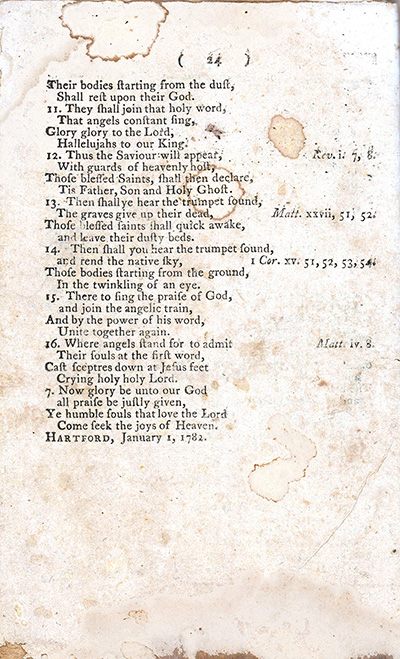 ( 24 )
Their bodies ſtarting from the duſt,
Shall reſt upon their God.
11. They ſhall join that holy word,
That angels conſtant ſing,
Glory glory to the Lord,
Hallelujahs to our King.
12. Thus the Saviour will appear, Rev. i. 7, 8.
With guards of heavenly hoſt,
Thoſe bleſſed Saints, ſhall then declare,
Tis Father, Son and Holy Ghoſt.
13. Then ſhall ye hear the trumpet ſound,
The graves give up their dead, Matt. xxvii, 51, 52.
Thoſe bleſſed ſaints ſhall quick awake,
and leave their duſty beds.
14. Then ſhall you hear the trumpet ſound,
and rend the native ſky, 1 Cor. xv. 51, 52, 53, 54.
Thoſe bodies ſtarting from the ground,
In the twinkling of an eye.
15. There to ſing the praiſe of God,
and join the angelic train,
And by the power of his word,
Unite together again.
16. Where angels ſtand for to admit Matt. iv. 8.
Their ſouls at the firſt word,
Caſt ſceptres down at Jeſus feet
Crying holy holy Lord.
7. Now glory be unto our God
all praiſe be juſtly given,
Ye humble ſouls that love the Lord
Come ſeek the joys of Heaven.
HARTFORD, January 1, 1782.